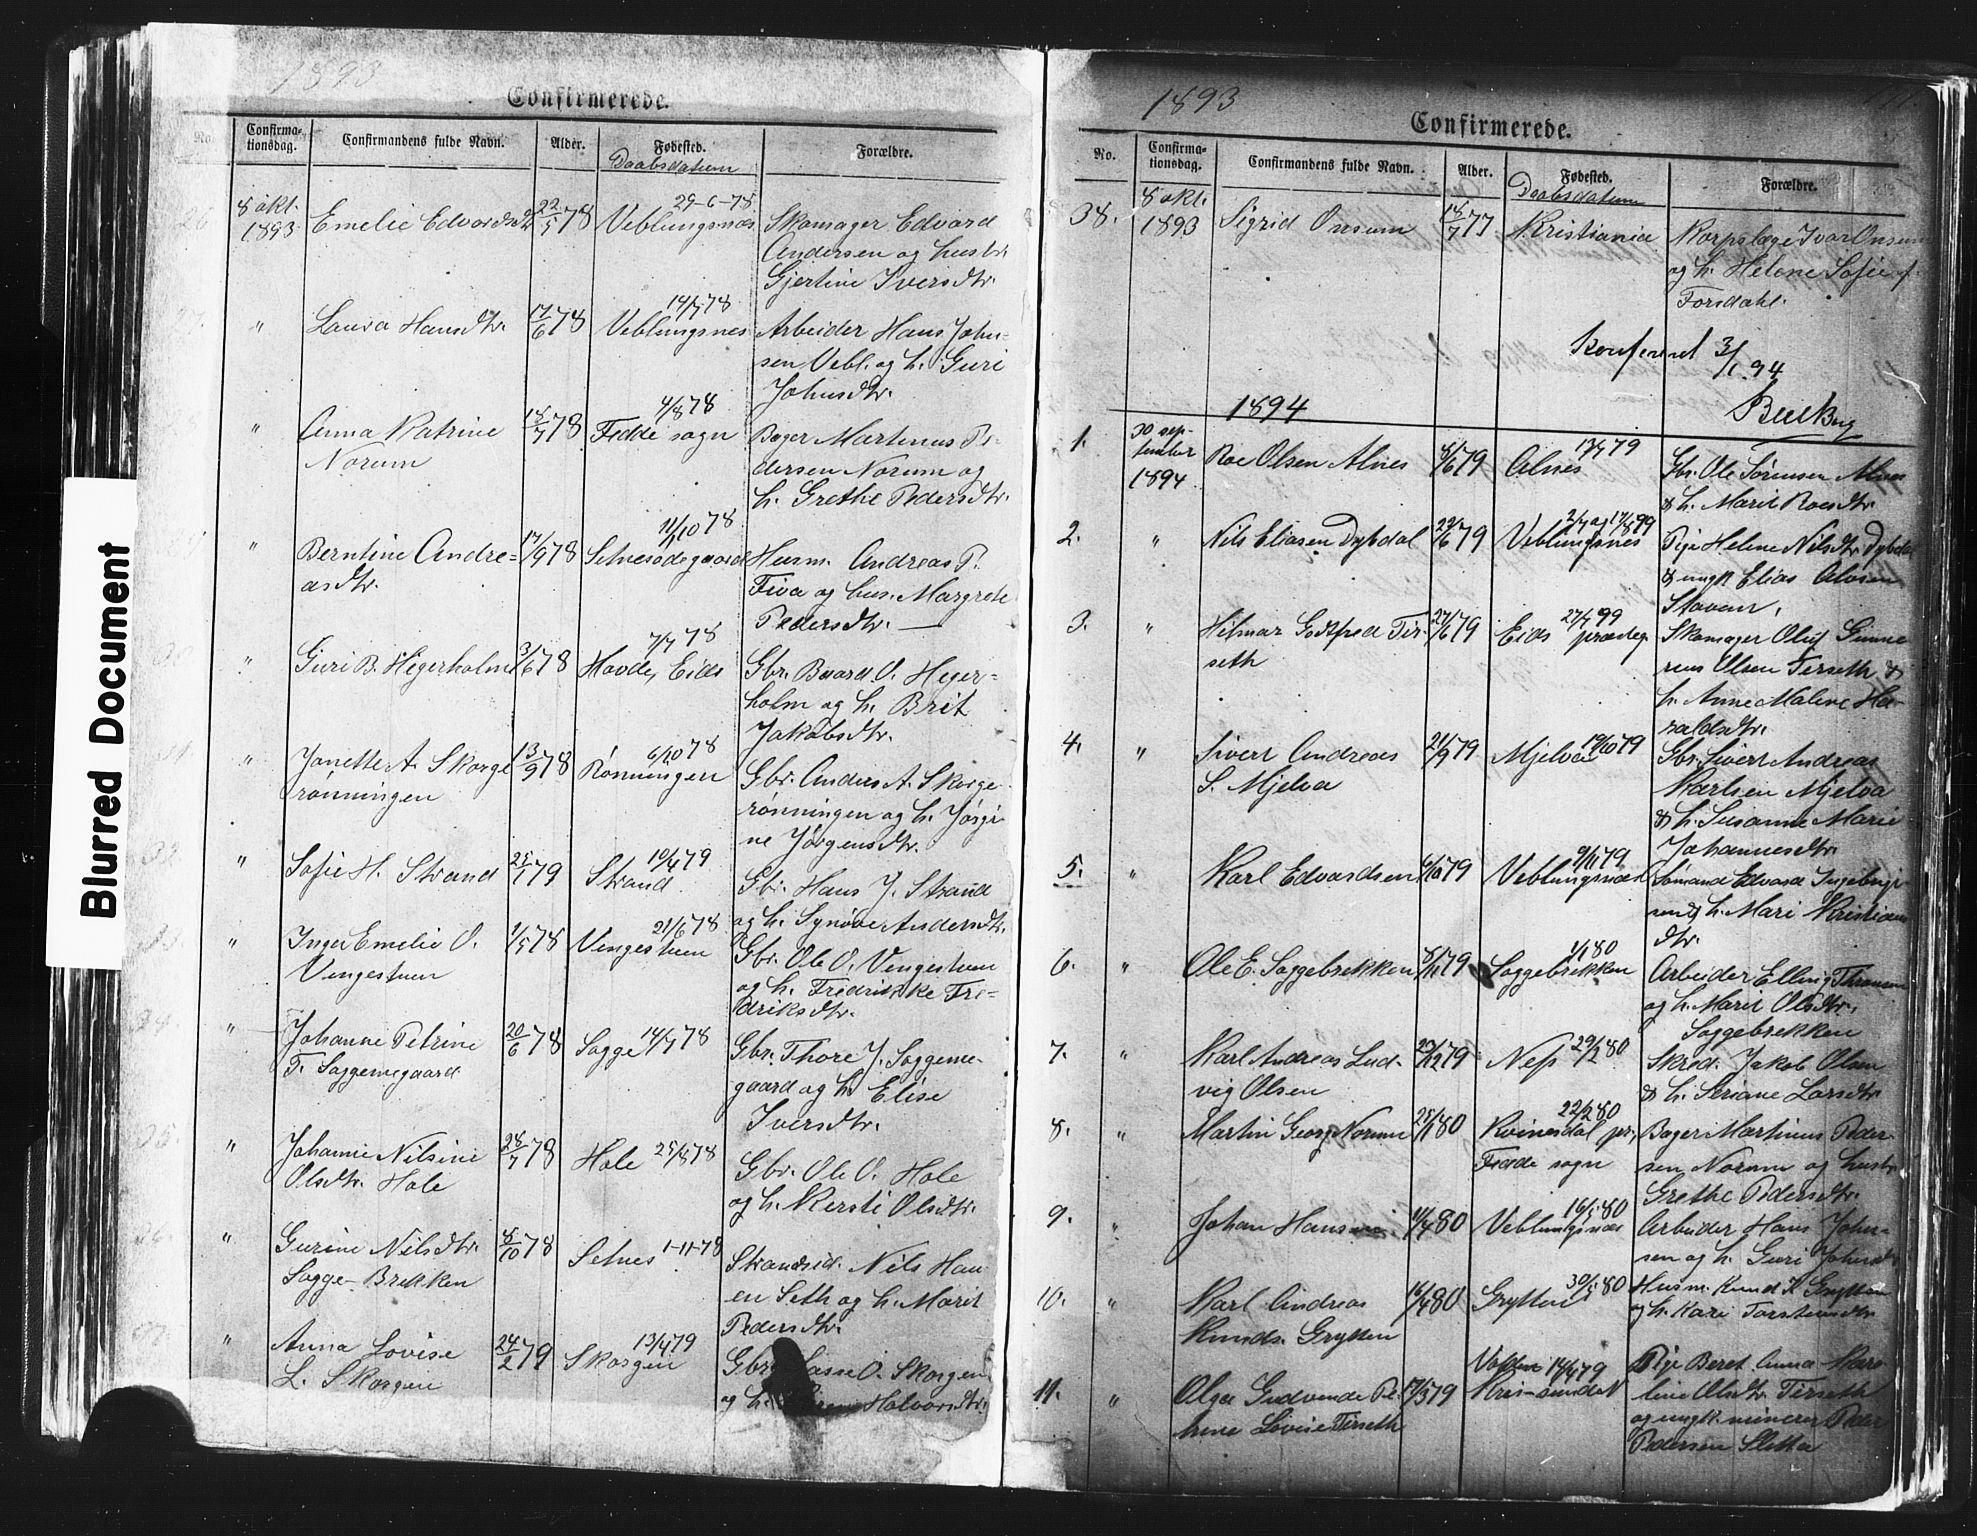 Blurred Document
1893
Confirmerede.
No.
Confirma-
tionsdag.
Confirmandens fulde Navn.
Alder.
Fødested.
Daabsdatum
Forældre.
26
8 okt.
1893
Emelie Edvardsdtr
22/5 78
29-6-78
Veblungsnæs
Skomager Edvard
Andersen og hustr.
Gjertine Iversdtr.
27.
"
Laura Hansdtr.
17/6 78
14/7 78
Veblungsnes
Arbeider Hans John-
sen Vebl. og h. Guri
Johnsdtr.
"
Anna Katrine
Norum
18/7 78
4/8 78
Fedde sogn
Bager Martinus Pe-
dersen Norum og
h. Grethe Pedersdtr.
"
Berntine Andre-
asdtr.
17/9 78
11/10 78
Setnesødegaard
Husm. Andreas P.
Fiva og hus. Margrete
Pedersdtr.
30.
"
Guri B. Hegerholm
3/6 78
7/7 78
Hovde, Eids
Gbr. Baard O. Heger-
holm og h. Brit
Jakobsdtr.
31.
"
Janette A. Skorge
rønningen
13/9 78
6/10 78
Rønningen
Gbr. Anders A. Skorge
rønningen og h. Jørgi-
ne Jørgensdtr.
32.
"
Sofie H. Strand
25/1 79
10/4 79
Strand
Gbr. Hans J. Strand
og h. Synøve Andersdtr.
33.
"
Inger Emelie O.
Vengestuen
1/5 78
21/6 78
Vengestuen
Gbr. Ole O. Vengestuen
og h. Fredrikke Fre-
driksdtr.
34.
"
Johanne Petrine
T. Soggemogaard
20/6 78
Sogge 14/7 78
Gbr. Thore J. Soggemo-
gaard og h. Elise
Iversdtr.
35.
"
Johanne Nilsine
Olsdtr. Hole
28/7 78
Hole 25/8 78
Gbr. Ole O. Hole
og h. Kersti Olsdtr.
36.
"
Gurine Nilsdtr.
Sogge-Brekken
8/10 78
Setnes 1-11-78
Strandsid. Nils Han-
en Seth og h. Marit
Pedersdtr.
37.
"
Anna Lovise
L. Skorgen
24/2 79
13/4 79
Skorgen
Gbr. Lasse O. Skorgen
og h. Halvorsdtr.
1893
Confirmerede.
No.
Confirma-
tionsdag.
Confirmandens fulde Navn.
Alder.
Fødested.
Daabsdatum
Forældre.
38.
8 okt.
1893
Sigrid Onsum
18/7 77
Kristiania
Korpslæge Ivar Onsum
og h. Helene Sofie f.
Forsdahl.
Konfereret 3/1. 94
1894
1.
30 sep-
tember
1894
Roe Olsen Alnes
8/6 79
13/7 79
Alnes
Gbr. Ole Sørensen Alnes
& h. Marit Roesdtr.
2.
"
Nils Eliasen Dybdal
22/6 79
2/7 og 17/8 99
Veblungsnes
Pige Helene Nilsdtr. Dybdal
& ungk. Elias
Stavem.
3.
"
Hilmar Godtfred Ters-
seth
27/6 79
27/7 99
Eids præsteg.
Skomager Oluf Gunne
rius Olsen Terseth &
h. Anne Malene Ha-
raldsdtr.
4.
"
Sivert Andreas
S. Mjelva
21/9 79
19/10 79
Mjelva
Gbr. Sivert Andreas
Karlsen Mjelva
& h. Susanne Marie
Johannesdtr.
5.
"
Karl Edvardsen
6/10 79
9/11 79
Veblungsnæs
Sømand Edvard Ingebrigt-
sen & h. Mari Kristians
dtr.
6.
"
Ole E. Soggebrekken
8/11 79
1/1 80
Soggebrekken
Arbeider Elling
og h. Marit Olsdtr.
Soggebrekken
7.
"
Karl Andreas Lud-
vig Olsen
20/12 79
29/2 80
Nes
Skred. Jakob Olsen
& h. Seriane Larsdtr.
8.
"
Martin Georg Norum
25/1 80
22/2 80
Kvinesdal pr.
Fedde sogn
Bager Martinus Peder
sen Norum og hustr.
Grethe Pedersdtr.
9.
"
Johan Hansen
11/4 80
16/5 80
Veblungsnæs
Arbeider Hans John-
sen og h. Guri Johnsdtr.
10.
"
Karl Andreas
Knuds. Grytten
16/4 80
30/5 80
Grytten
Husm. Knud K Grytten
og h. Kari Torstensdtr
11.
"
Olga Gudvende Pe-
trine Lovise Terseth
17/3 79
Volden 14/4 79
Kris-sund N
Pige Beret Anna Kare
line Olsdtr. Terseth
og ungk. minerer Peder
Pedersen Sletta